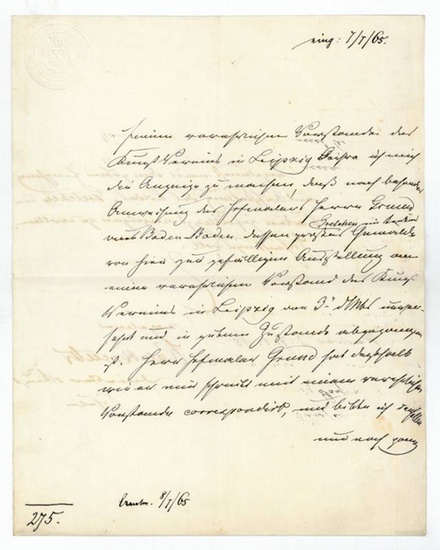 eing: 7/7/65.
Einem verehrlichen Vorstande des
Kunst Vereins in Leipzig beehre ich mich
die Anzeige zu machen, daß nach
Anweisung des Hofmalers Herrn Grund
von Baden-Baden dessen großes Gemälde
von hier zur gefälligen Ausstellung an
einen verehrlichen Vorstand des Kunst
Vereins in Leipzig am 3. d. Mts
und in gutem Zustande abgegangen
ist. Herr Hofmaler Grund hat deshalb
wie er mir schreibt mit einem verehrlichen
Vorstande correspondirt, und bitte ich
nur noch ganz
8/7/65
275.